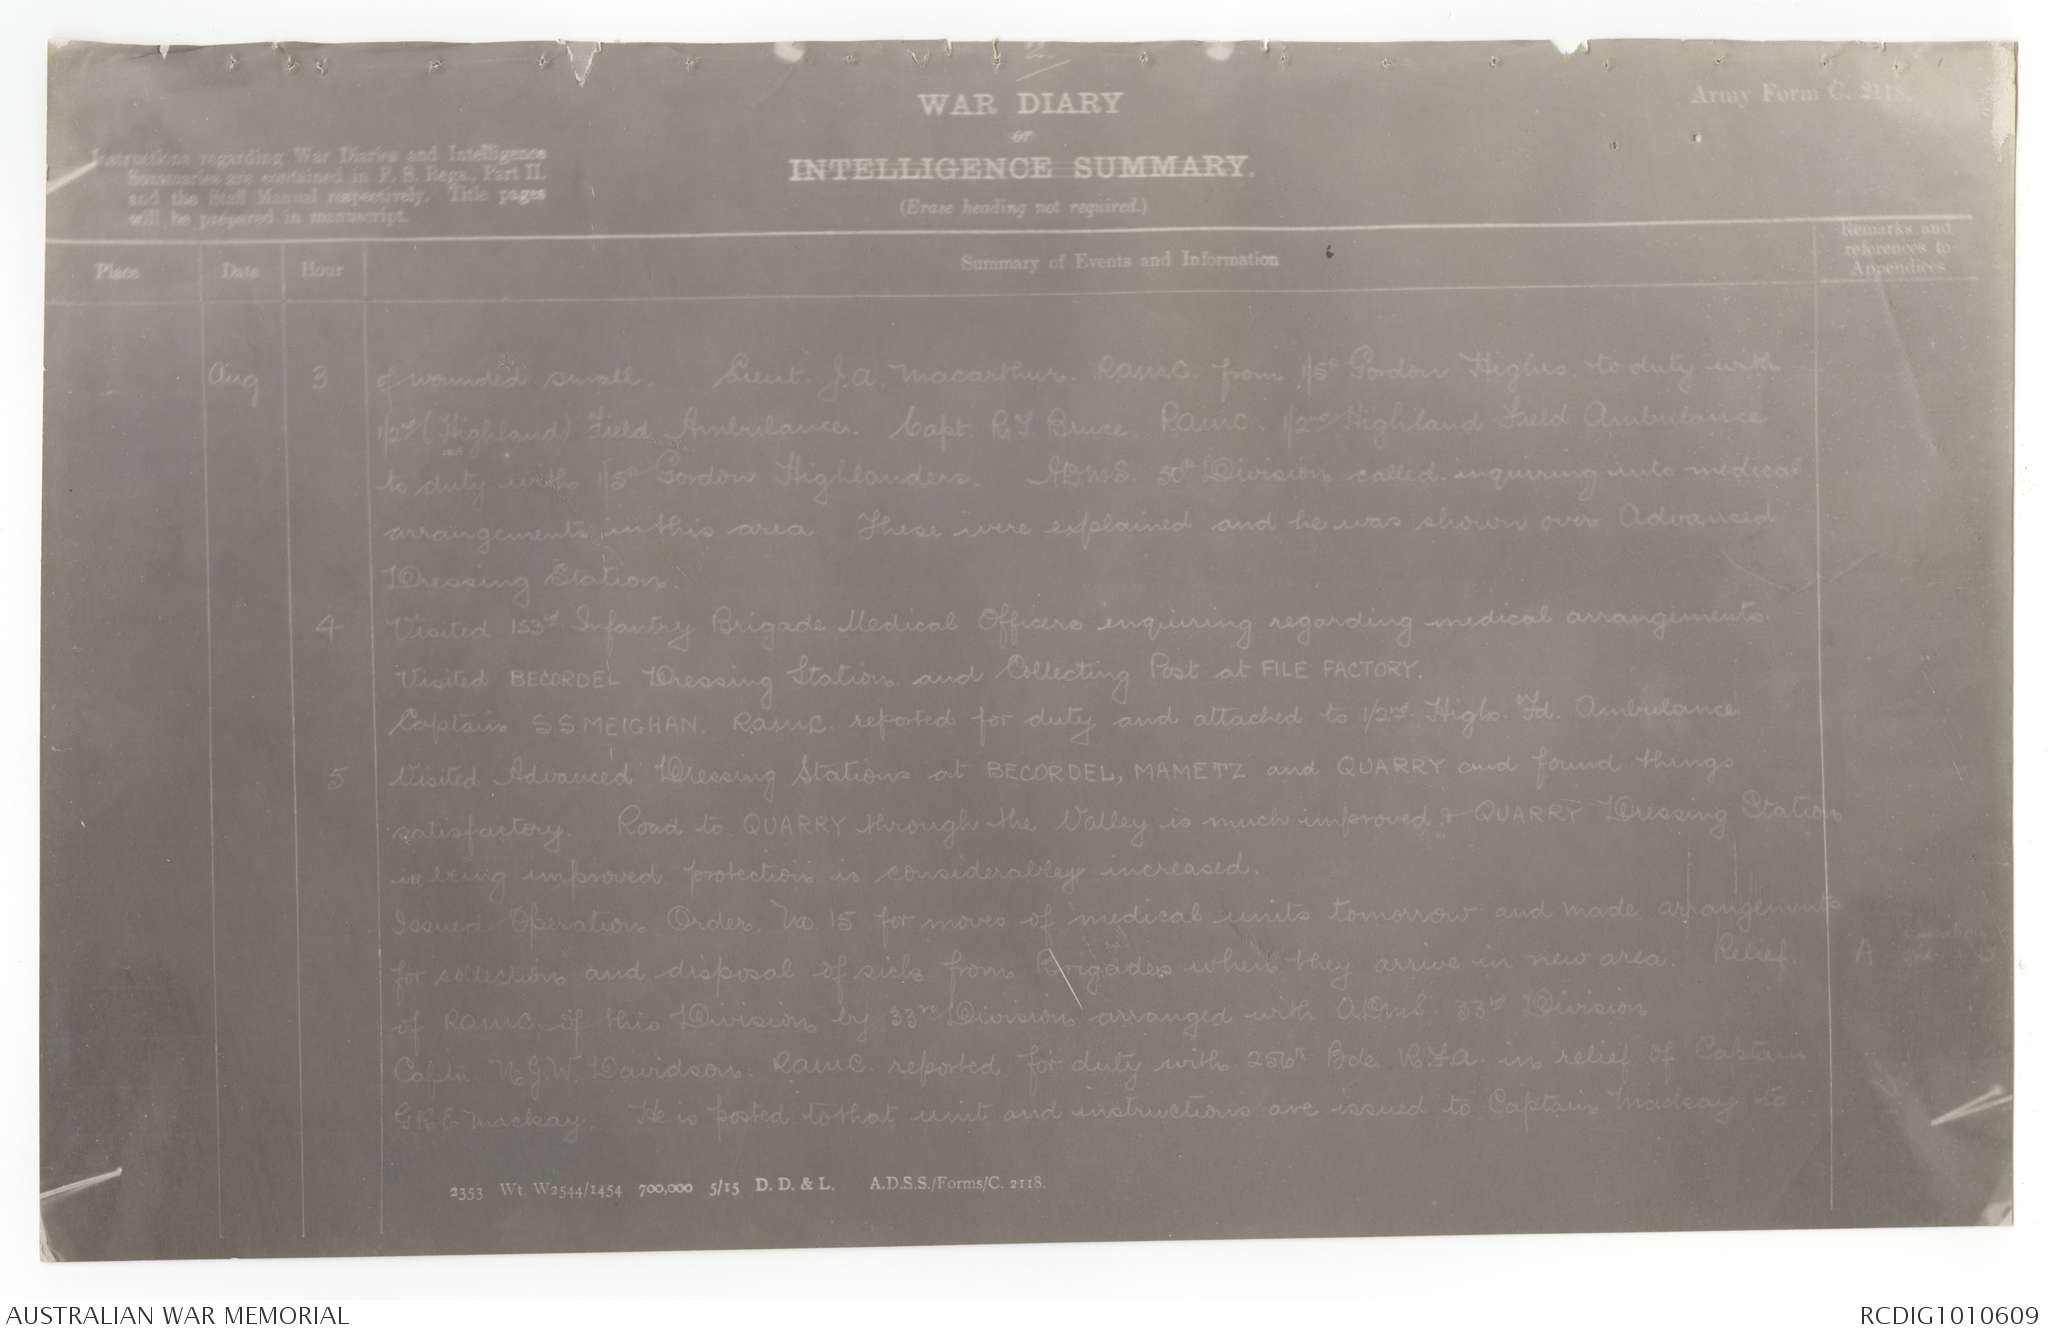 2
WAR DIARY
or
INTELLIGENCE SUMMARY.
(Erase heading not required.)
Army Form C. 2118.
Instructions regarding War Diaries and Intelligence
Summaries are contained in F. S. Regs., Part II.
and the Staff Manual respectively. Title pages
will be prepared in manuscript.
Place Date Hour Summary of Events and Information Remarks and
references to
Appendices
Aug 3 of wounded small. Lieut. J.A. Macarthur. RAMC. from 1/5th Gordon Highrs. to duty with
1/2nd (Highland) Field Ambulance. Capt. R.T. Bruce. RAMC. 1/2nd Highland Field Ambulance
to duty with 1/5th Gordon Highlanders. ADMS. 50th Division called inquiring into medical
arrangements in this area These were explained and he was shown over Advanced
Dressing Station.
4 Visited 153rd Infantry Brigade Medical Officers enquiring regarding medical arrangements.
Visited BECORDEL Dressing Station and Collecting Post at FILE FACTORY.
Captain S.S. MEIGHAN. RAMC. reported for duty and attached to 1/2nd High. Fd. Ambulance
5 Visited Advanced Dressing Stations at BECORDEL, MAMETZ and QUARRY and found things
satisfactory. Road to QUARRY through the Valley is much improved & QUARRY Dressing Station
is being improved protection is considerably increased.
Issued Operation Order No 15 for moves of medical units tomorrow and made arrangements
for collection and disposal of sick from Brigades when they arrive in new area. Relief A
of RAMC of this Division by 33rd Division arranged with ADMS. 33rd Division
Captn N.G.W. Davidson. RAMC. reported for duty with 256th Bde R.F.A. in relief of Captain
G.R.E. Mackay. He is posted to that unit and instructions are issued to Captain Mackay to
2353 Wt. W2544/1454 700,000 5/15 D. D. & L. A.D.S.S./Forms/C. 2118.
AUSTRALIAN WAR MEMORIAL RCDIG1010609